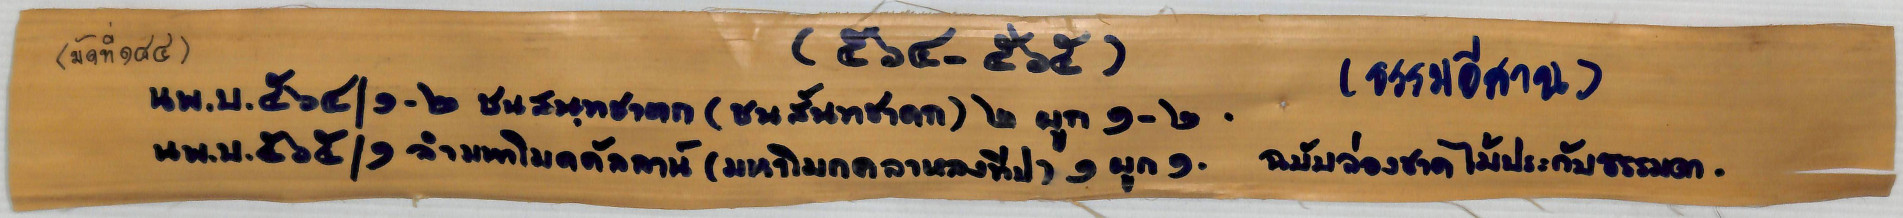 (มัดที่ ๑๔๔)
(๕๖๔-๕๖๕)
(ธรรมอีสาน)
นพ.บ.๕๖๔/๑-๒ ชนสนฺทชาดก (ชนสันทชาดก) ๒ ผูก ๑-๒.
นพ.บ.๕๖๕/๑ ลำมหาโมคคัลลาน์ (มหาโมกคลาหลงขีป่า) ๑ ผูก ๑. ฉบับล่องชาดไม้ประกับธรรมดา.